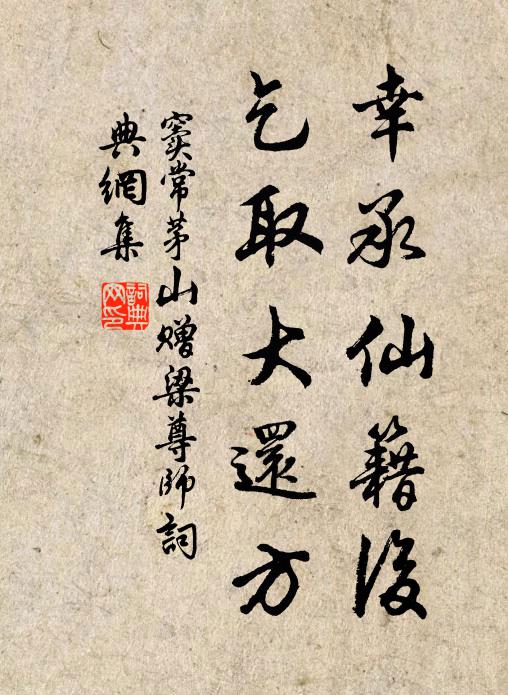 幸承仙籍後
乞取大還方
竇常茅山贈梁尊師詞
典網集
詞典網印